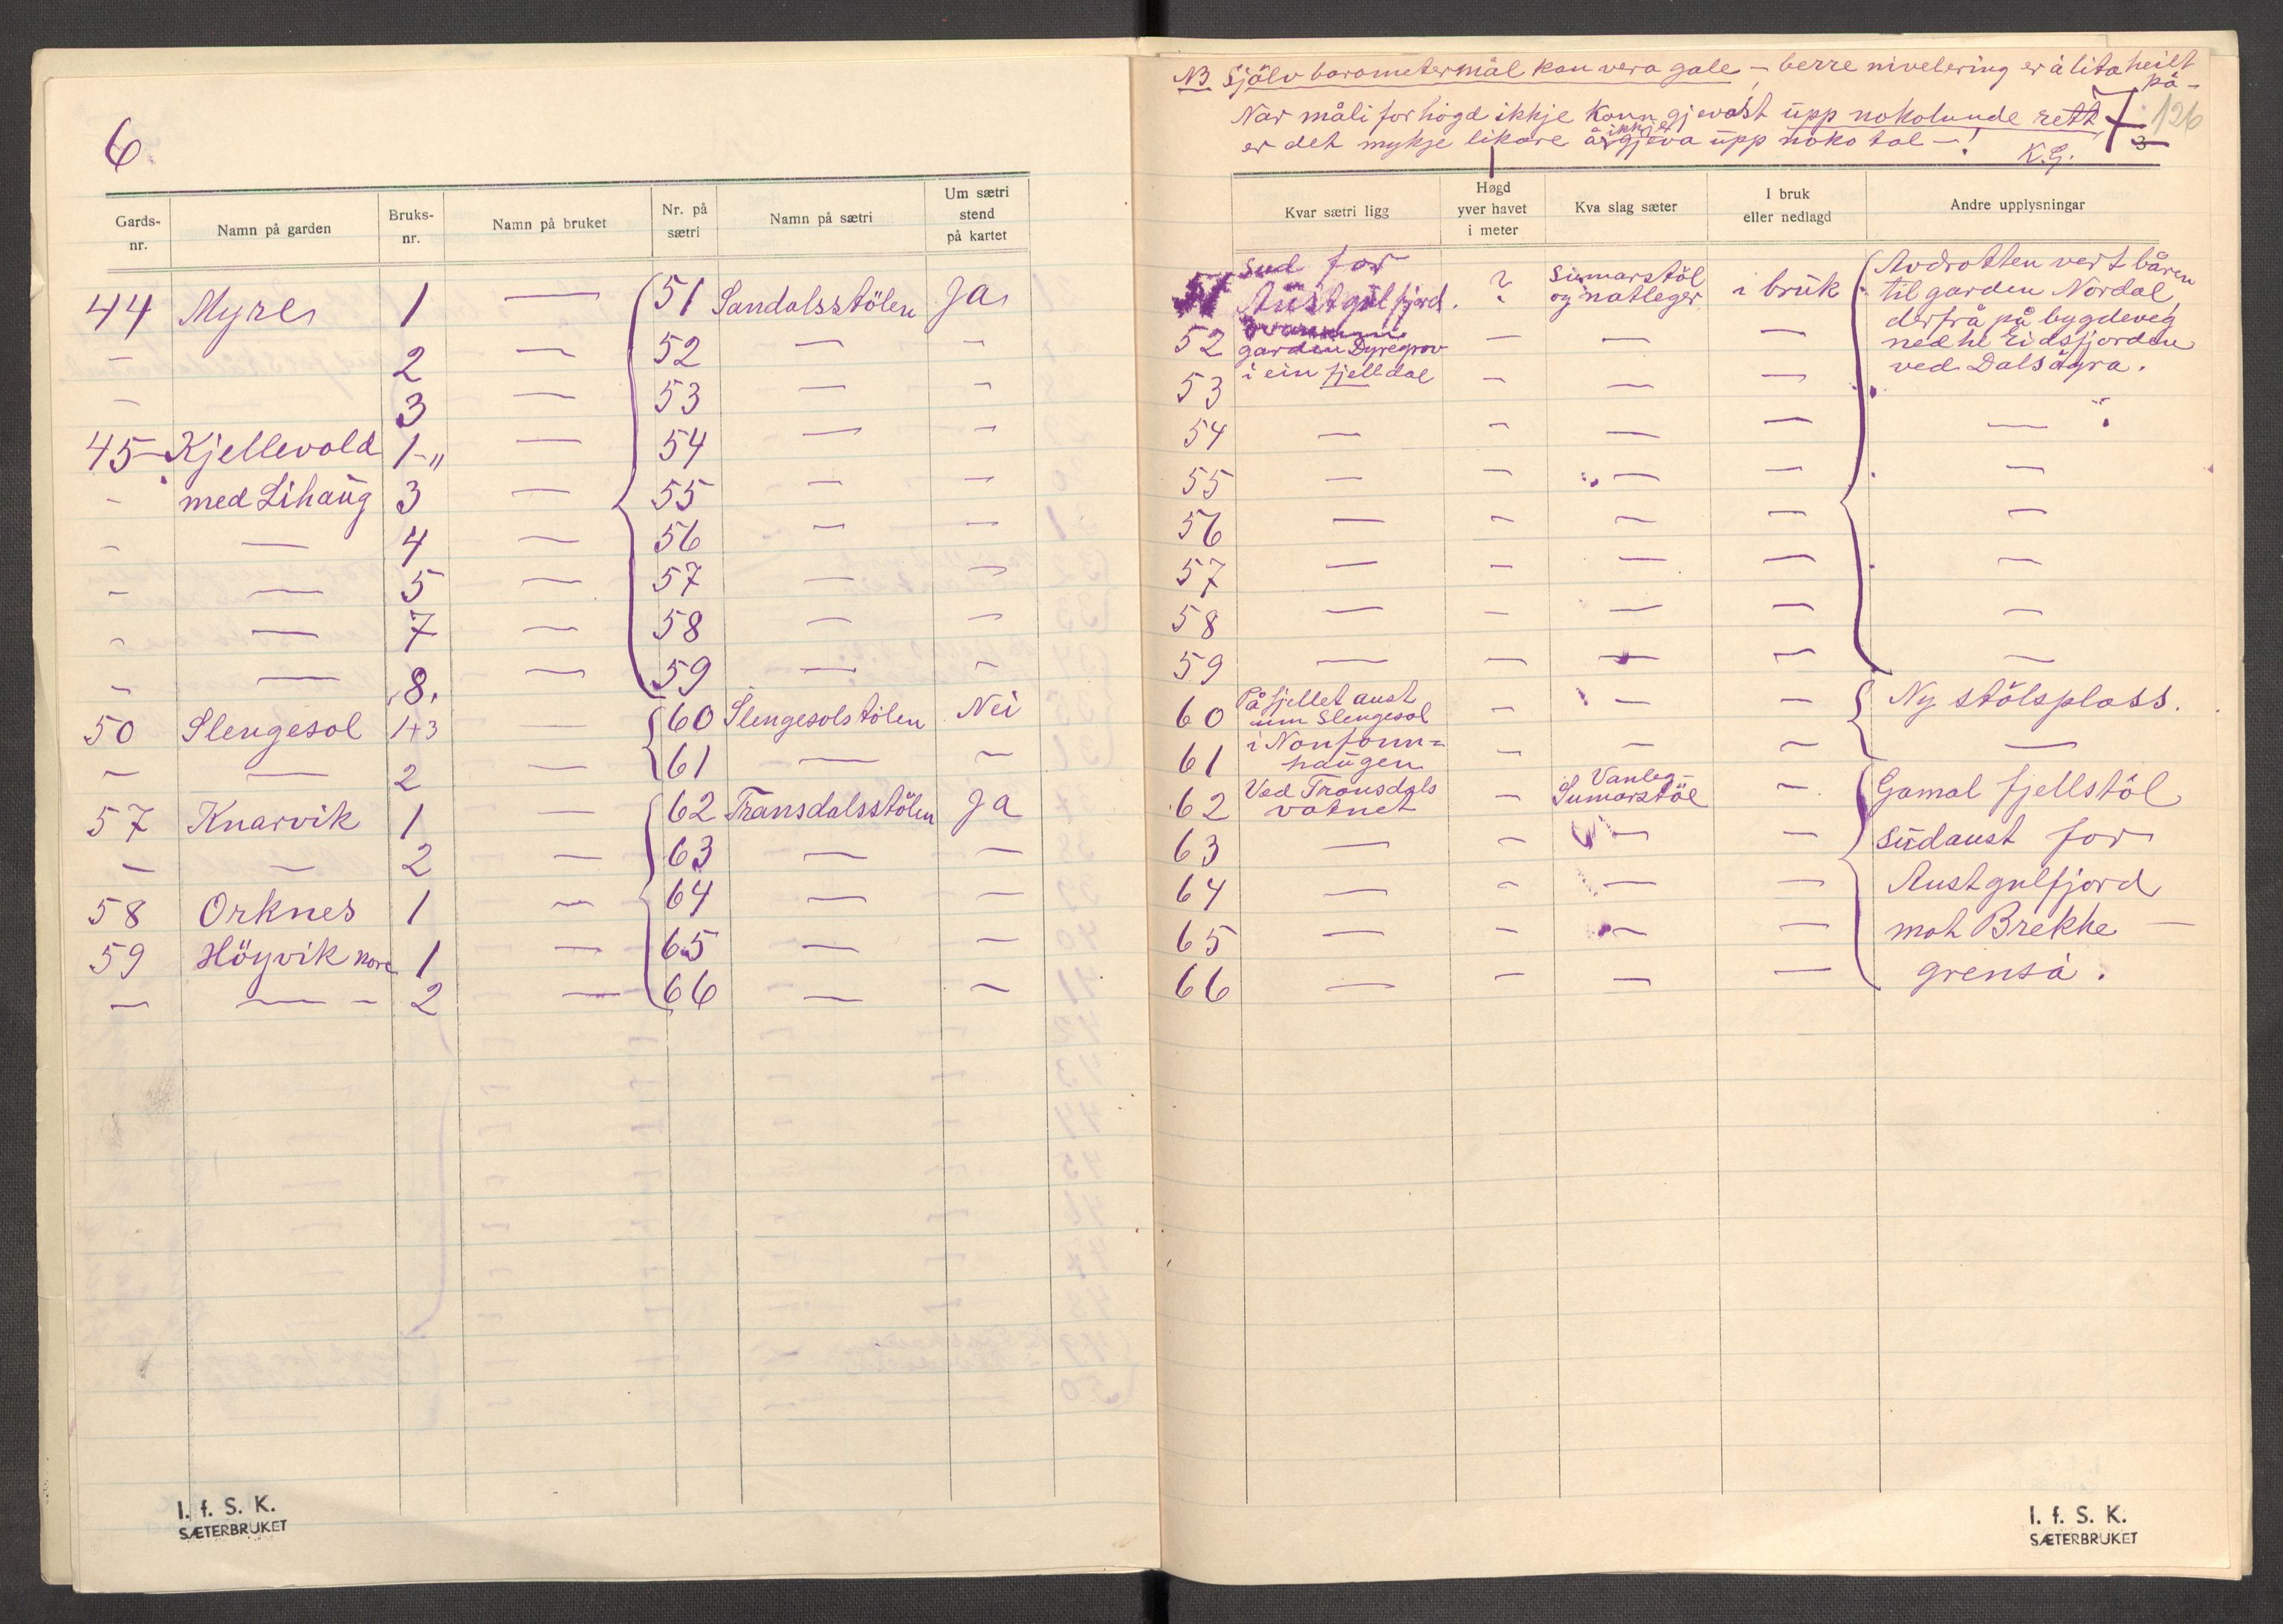 6.
Gards-nr. Namn på garden Bruks-nr. Namn på bruket Nr. på sætri Namn på sætri Um sætri stend på kartet
44 Myre 1 — 51 Sandalsstölen Ja
— 2 — 52 — —
— 3 — 53 — —
45 Kjellevold 1 " — 54 — —
- med Lihaug 3 — 55 — —
- — 4 — 56 — —
- — 5 — 57 — —
- — 7 — 58 — —
- — 8. — 59 — —
50 Slengesol 1+3 — 60 Slengesolstölen Nei
— — 2 — 61 — —
57 Knarvik 1 — 62 Transdalsstölen Ja
— — 2 — 63 — —
58 Orknes 1 — 64 — —
59 Höyvik nore 1 — 65 — —
— — - 2 — 66 — —
I. f. S. K.
SÆTERBRUKET
NB Själv barometermål kan vera gale — berre nivelering er å lita heilt på —
Når måli for högd ikkje kann gjevast upp nokolunde rett,
er det mykje likare å ikkje gjeva upp noko tal — !
K.G.
7.
126
3
Kvar sætri ligg Høgd yver havet i meter Kva slag sæter I bruk eller nedlagd Andre upplysningar
51 Sud for Austgulfjord. ? Sumarstöl og natleger i bruk Avdrotten vert båren
til garden Nordal,
derfrå på bygdeveg
ned til Eidsfjorden
ved Dalsöyra.
52 garden Dyregrov — — —
53 i ein fjelldal — — —
54 — — — — —
55 — — — — —
56 — — — — —
57 — — — — —
58 — — — — —
59 — — — — —
60 På fjellet aust um Slengesol — — — Ny stölsplass.
61 i Nonfonn=haugen — — — —
62 Ved Transdals vatnet — Vanleg Sumarstöl — Gamal fjellstöl
63 — — — — südaust for
64 — — — — Austgulfjord
65 — — — — mot Brekke —
66 — — — — grensa.
I. f. S. K.
SÆTERBRUKET